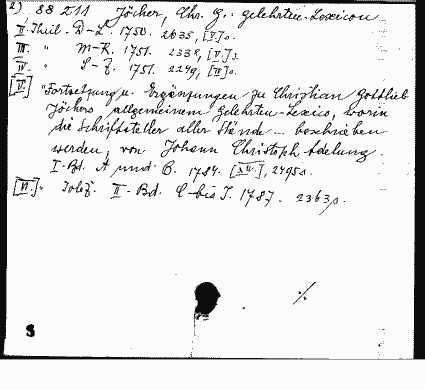 2) 88 211 Jöcher, Chr. G.: gelehrten-Lexicon
II Theil. D-L. 1750. 2635, [V]s.
III. " M-R. 1751. 2339, [V]s.
IV. " S-Z. 1751. 2249, [II]s.
[V] "Fortsetzung u. Ergänzungen zu Christian Gottlieb
Jöchers allgemeinem Gelehrten-Lexico, worin
die Schriftsteller aller Stände ... beschrieben
werden, von Johann Christoph Adelung.
I-Bd. A und B. 1784. 2495s.
[VI.] " II-Bd. C bis J. 1787. 2363s.
%
S